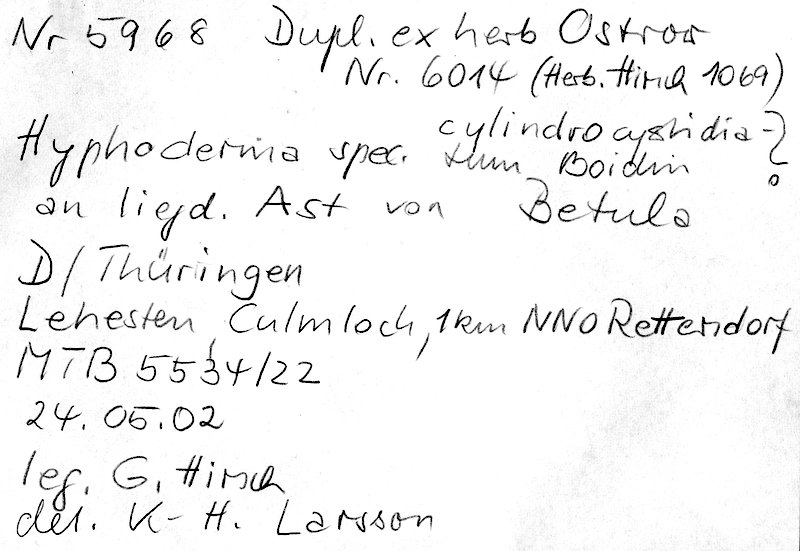 Nr 5968 Dupl. ex herb Ostrow
Nr. 6014 (Herb. Hirsch 1069)
Hyphoderma spec. cylindrocystidia-
tum Boidin ?
an liegd. Ast von Betula
D/Thüringen
Lehesten, Culmloch, 1km NNO Rettersdorf
MTB 5534/22
24.05.02
leg. G. Hirsch
det. K-H. Larsson